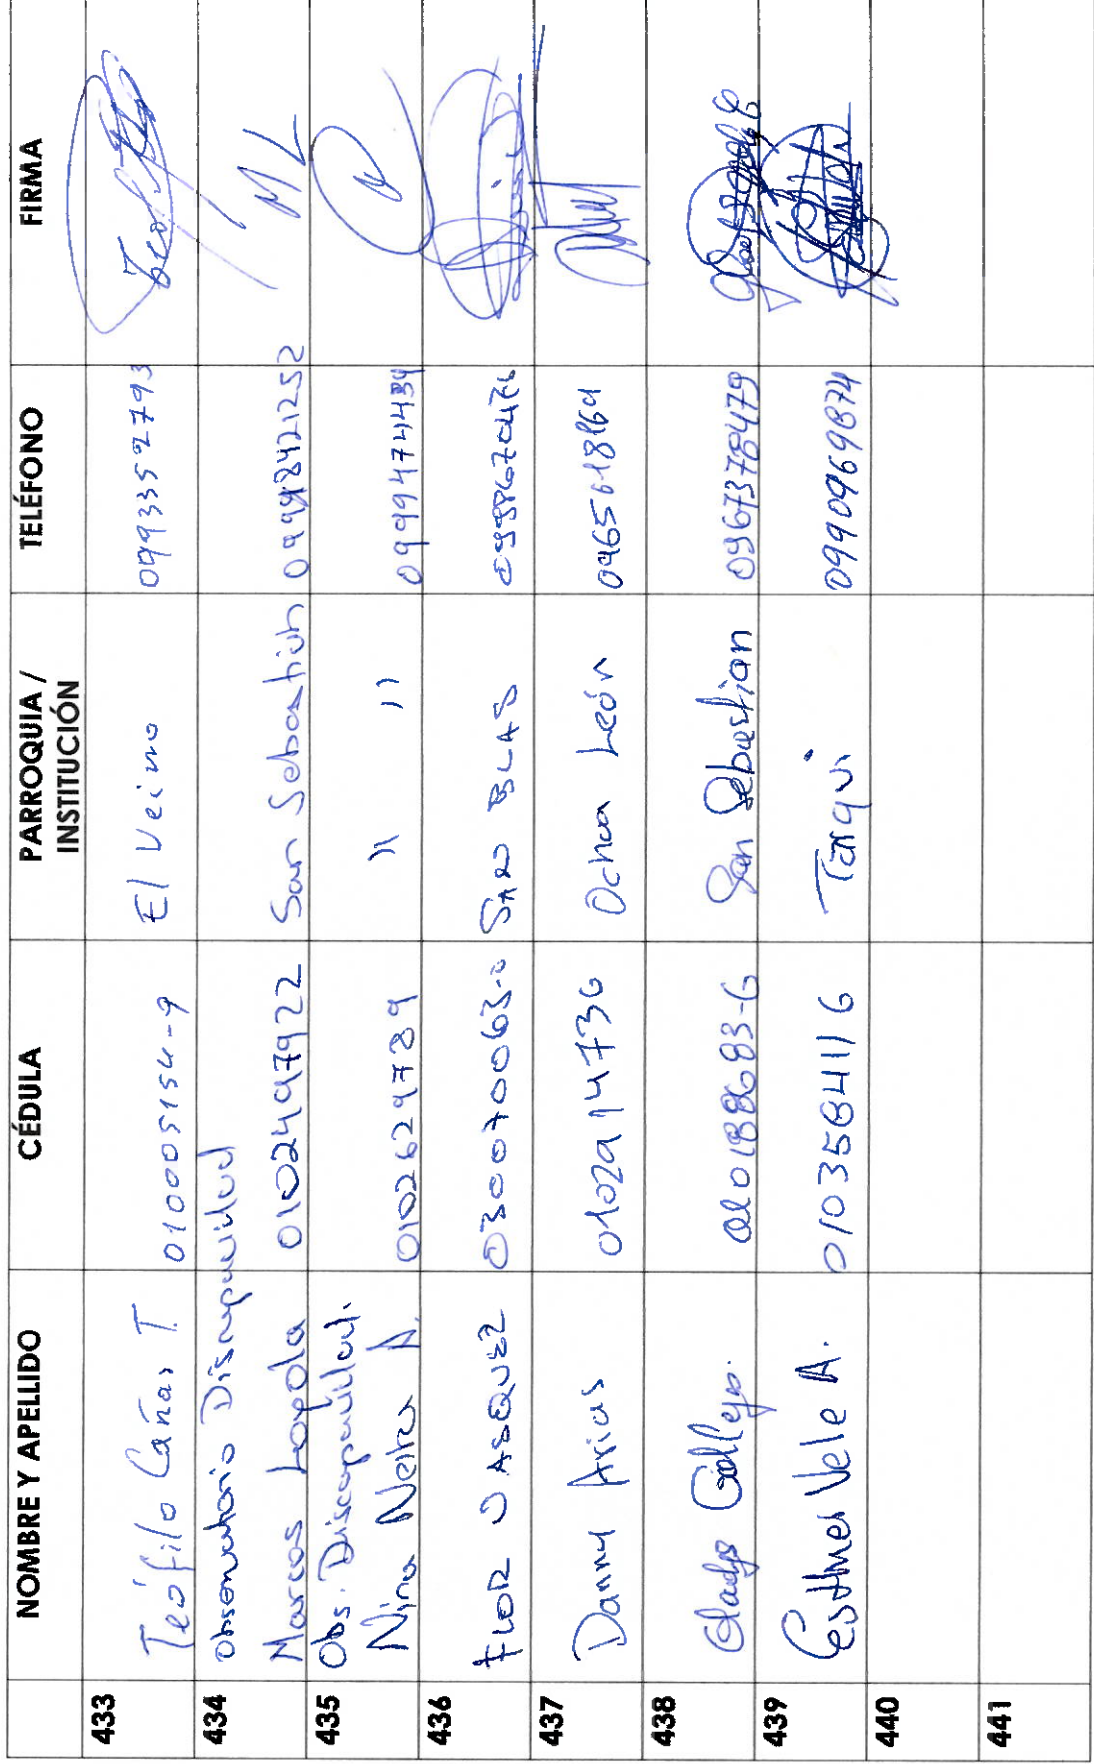 NOMBRE Y APELLIDO CÉDULA PARROQUIA / INSTITUCIÓN TELÉFONO FIRMA
433 Teófilo Cañas T. 010005154-9 El Veimo 0993352793
434 Observatorio Discapacidad
Marcos Loyola 0102497922 San Sebastian 0998421252
435 Obs. Discapacidad.
Nina Neira A. 0102629789 " " 0999474439
436 FLOR VASQUEZ 030070063-0 SAN BLAS
437 Danny Arias 0102914736 Ochoa León
438 Gladys Gallegos. 010188683-6 San Sebastian 0967378479
439 Esther Vele A. 0103584116 Tarqui 0990969874
440
441